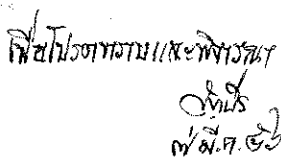 เพื่อโปรดทราบและพิจารณา
๗ มี.ค. ๕๖